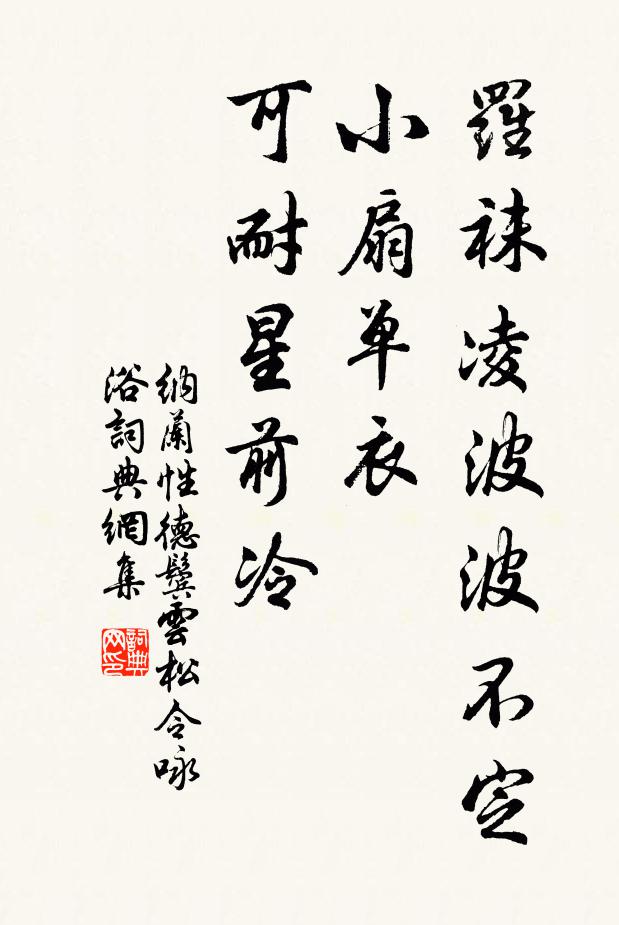 羅襪凌波波不定
小扇单衣
可耐星前冷
納蘭性德鬓雲松令咏
浴詞典網集
詞典网印